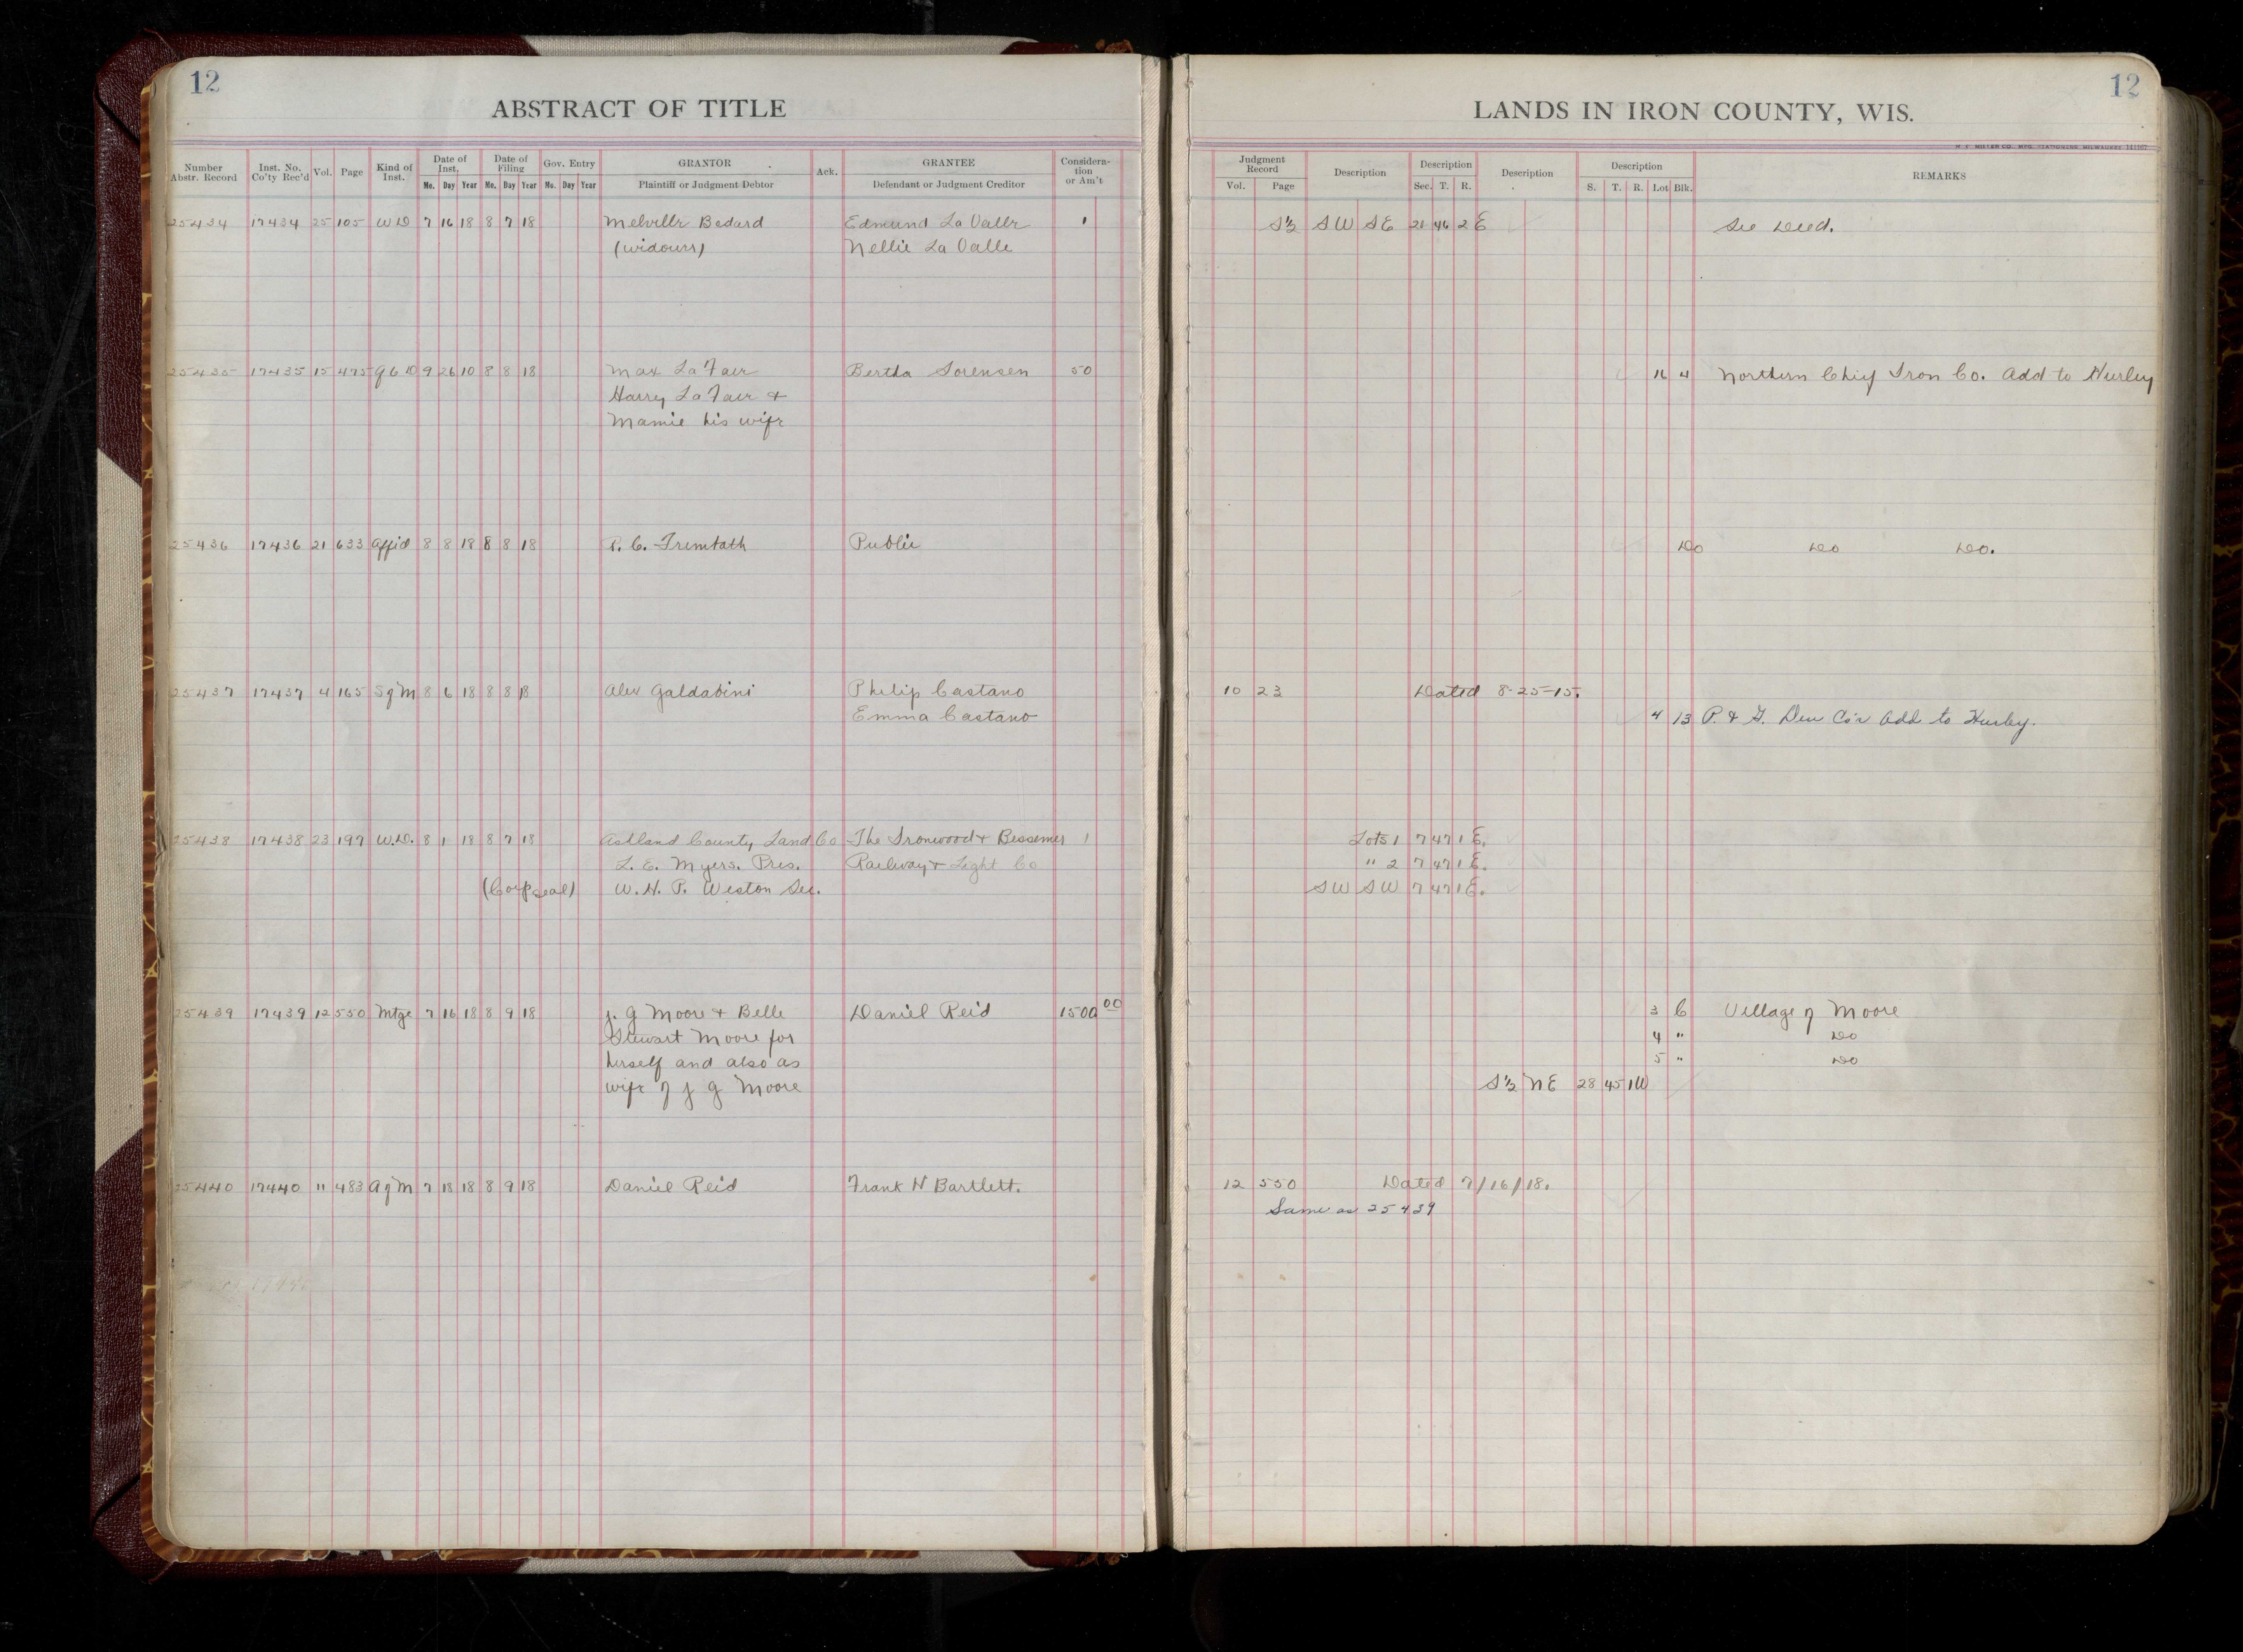 12
ABSTRACT OF TITLE
Number Abstr. Record
Inst. No. Co'ty Rec'd
Vol.
Page
Kind of Inst.
Date of Inst.
Mo. Day Year
Date of Filing
Mo. Day Year
Gov. Entry
Mo. Day Year
GRANTOR
Plaintiff or Judgment Debtor
Ack.
GRANTEE
Defendant or Judgment Creditor
Considera-tion or Am't
25434 17434 25 105 W D 7 16 18 8 7 18 Melville Bedard Edmund La Valle 1
(widower) Nellie La Valle
25435 17435 15 475 Q C D 9 26 10 8 8 18 Max La Fair Bertha Sorensen 50
Harry La Fair &
Mamie his wife
25436 17436 21 633 Affid 8 8 18 8 8 18 P. C. Trembath Public
25437 17437 4 165 S of M 8 6 18 8 8 18 Alex Galdabini Philip Castano
Emma Castano
25438 17438 23 197 W.D. 8 1 18 8 7 18 Ashland County Land Co The Ironwood & Bessemer 1
L. E. Myers. Pres. Railway & Light Co
(Corp seal) W. H. P. Weston Sec.
25439 17439 12 550 Mtge 7 16 18 8 9 18 J. G Moore & Belle Daniel Reid 1500 00
Stewart Moore for
herself and also as
wife of J G Moore
25440 17440 " 483 A of M 7 18 18 8 9 18 Daniel Reid Frank H Bartlett.
12
LANDS IN IRON COUNTY, WIS.
Judgment Record
Vol. Page
Description
Description
Sec. T. R.
Description
Description
S. T. R. Lot Blk.
REMARKS
S½ SW SE 21 46 2 E See Deed.
11 4 Northern Chief Iron Co. Add to Hurley
Do Do Do.
10 23 Dated 8-25-15.
4 13 P. & G. Dev Co's Add to Hurley.
Lots 1 7 47 1 E.
" 2 7 47 1 E.
SW SW 7 47 1 E.
3 C Village of Moore
4 " Do
5 " Do
S½ NE 28 45 1 W
12 550 Dated 7/16/18.
Same as 25439